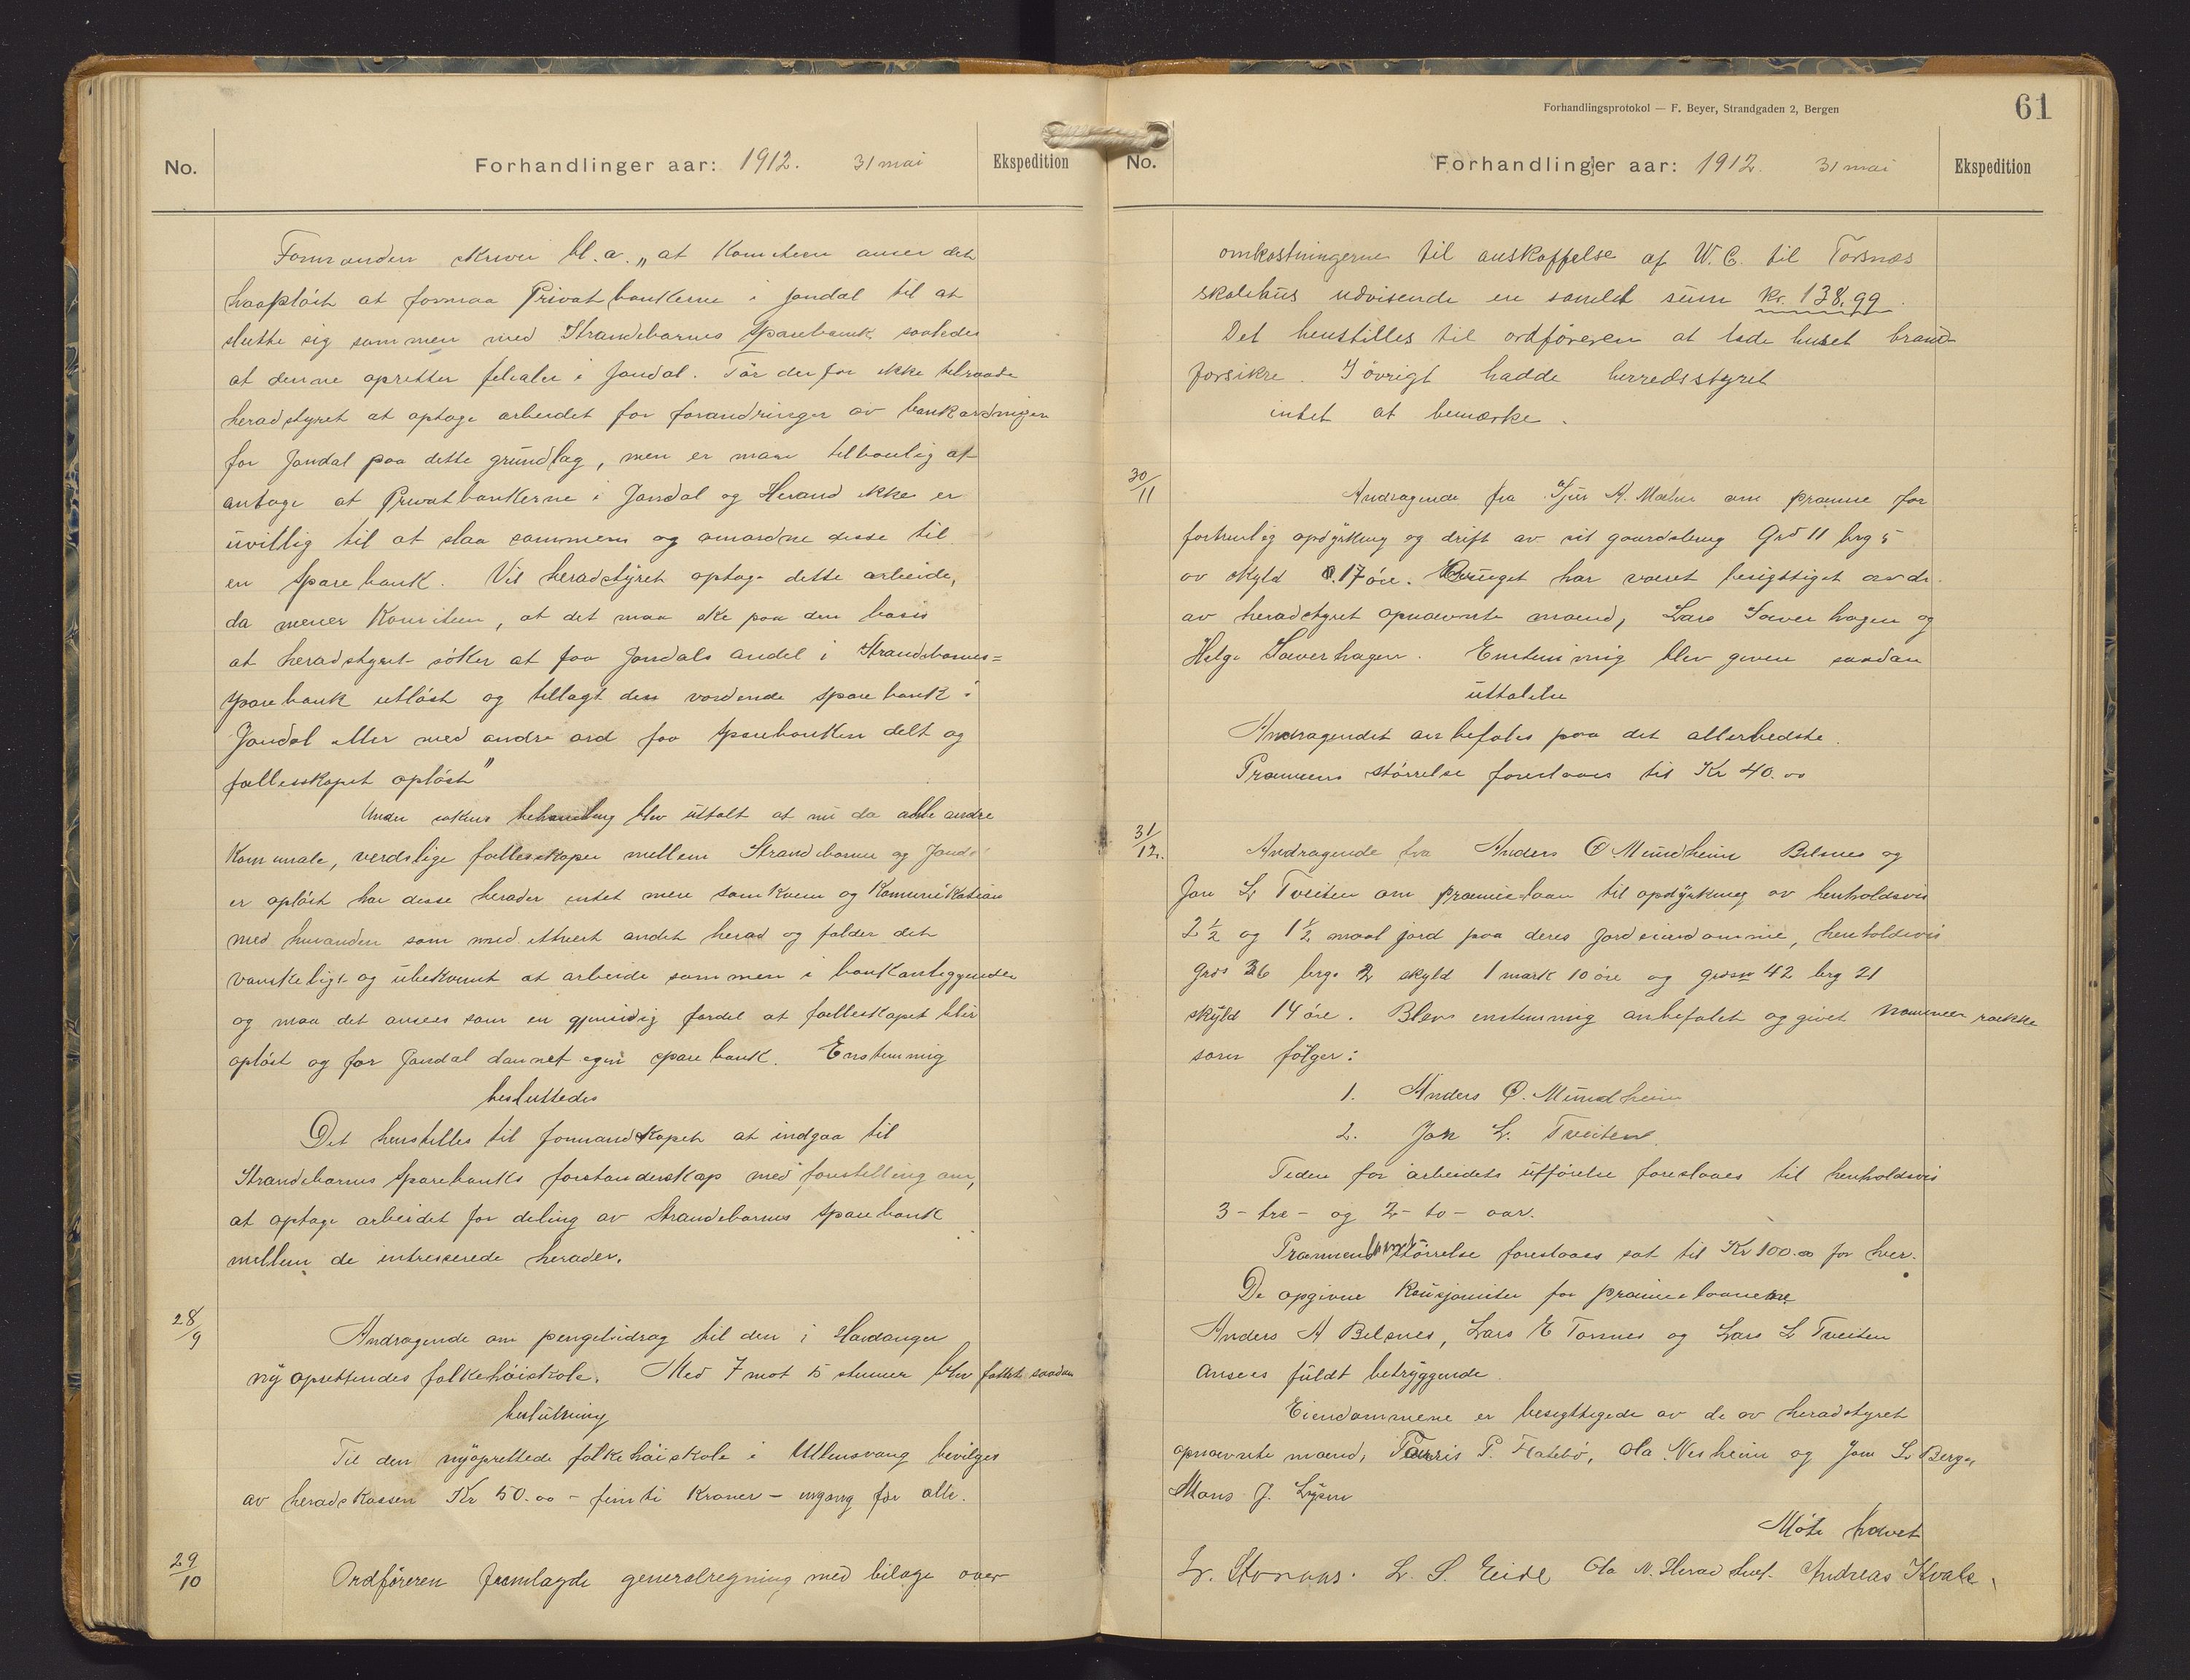 No.
Forhandlinger aar: 1912. 31 mai
Ekspedition
Formanden skriver bl.a. „at Komiteen anser det
haapløst at formaa Privatbankerne i Jondal til at
slutte sig sammen med Strandebarms Sparebank saaledes
at denne opretter filialer i Jondal. Tør derfor ikke tilraade
heradstyret at optage arbeidet for forandringer av bankordningen
for Jondal paa dette grundlag, men er man tilbøielig at
antage at Privatbankerne i Jondal og Herand ikke er
uvillig til at slaa sammen og omordne disse til
en Sparebank. Vil heradstyret optage dette arbeide,
da mener Komiteen, at det maa ske paa den basis
at heradstyret søker at faa Jondals andel i Strandebarms=
sparebank utløst og tillagt den vordende sparebank i
Jondal eller med andre ord faa sparebanken delt og
fællesskapet opløst"
Under sakens behandling blev uttalt at nu da alle andre
Komunale, verdslige fællesskaper mellem Strandebarm og Jondal
er opløst har disse herader intet mere samkvem og Komunikation
med hverandre som med ethvert andet herad og falder det
vanskeligt og ubekvemt at arbeide sammen i bankanliggender
og maa det ansees som en gjensidig fordel at fælleskapet blir
opløst og for Jondal dannet egen sparebank. Enstemmig
besluttedes
Det henstilles til formandskapet at indgaa til
Strandebarms Sparebanks forstanderskap med forestilling om,
at optage arbeidet for deling av Strandebarms Sparebank
mellem de intresserede herader.
28/9
Andragende om pengebidrag til den i Hardanger
ny oprettendes folkehøiskole. Med 7 mot 5 stemmer blev fattet saadan
beslutning
Til den nyoprettede folkehøiskole i Ullensvang bevilges
av heradskassen Kr 50.00 - femti Kroner - engang for alle.
29/10
Ordføreren fremlagde generalregning med bilage over
Forhandlingsprotokol — F. Beyer, Strandgaden 2, Bergen
61
No.
Forhandlinger aar: 1912. 31 mai
Ekspedition
omkostningerne til anskaffelse af W.C. til Torsnæs
skolehus udvisende en samlet sum kr. 138,99.
Det henstilles til ordføreren at lade huset brand-
forsikre. I øvrigt hadde herredsstyret
intet at bemærke.
30/11
Andragende fra Sjur A. Mæhle om præmie for
fortrinlig opdyrkning og drift av sit gaardsbrug Gno 11 brg 5
av skyld 0.17 øre. Bruget har været besigttiget av de
av heradstyret opnævnte mænd, Lars Sæverhagen og
Helge Sæverhagen. Enstemmig blev given saadan
uttalelse
Andragendet anbefales paa det allerbedste.
Præmiens størrelse foreslaaes til Kr 40.00
31/12.
Andragende fra Anders O Mundheim Belsnes og
Jon L Tveiten om præmielaan til opdyrkning av henholdsvis
2 1/2 og 1 1/2 maal jord paa deres jordeiendomme, henholdsvis
Gno 36 brg. 2 skyld 1 mark 10 øre og gaardsn 42 brg 21
skyld 14 øre. Blev enstemmig anbefalet og givet nummer række
som følger:
1. Anders O. Mundheim
2. Jon L. Tveiten.
Tiden for arbeidets utførelse foreslaaes til henholdsvis
3 - tre - og 2 - to - aar.
Præmielaanets størrelse foreslaaes sat til Kr 100.00 for hver.
De opgivne Kausjonister for præmielaanene
Anders A Belsnes, Lars E Tornes og Lars L Tveiten
ansees fuldt betryggende.
Eiendommene er besigttigede av de av heradstyret
opnævnte mænd, Torris P. Flatebø, Ola Nesheim og Jon L Berge,
Mons J. Lysen
Møte hævet
L. S. Eide Ola N. Herand Andreas Kvale.